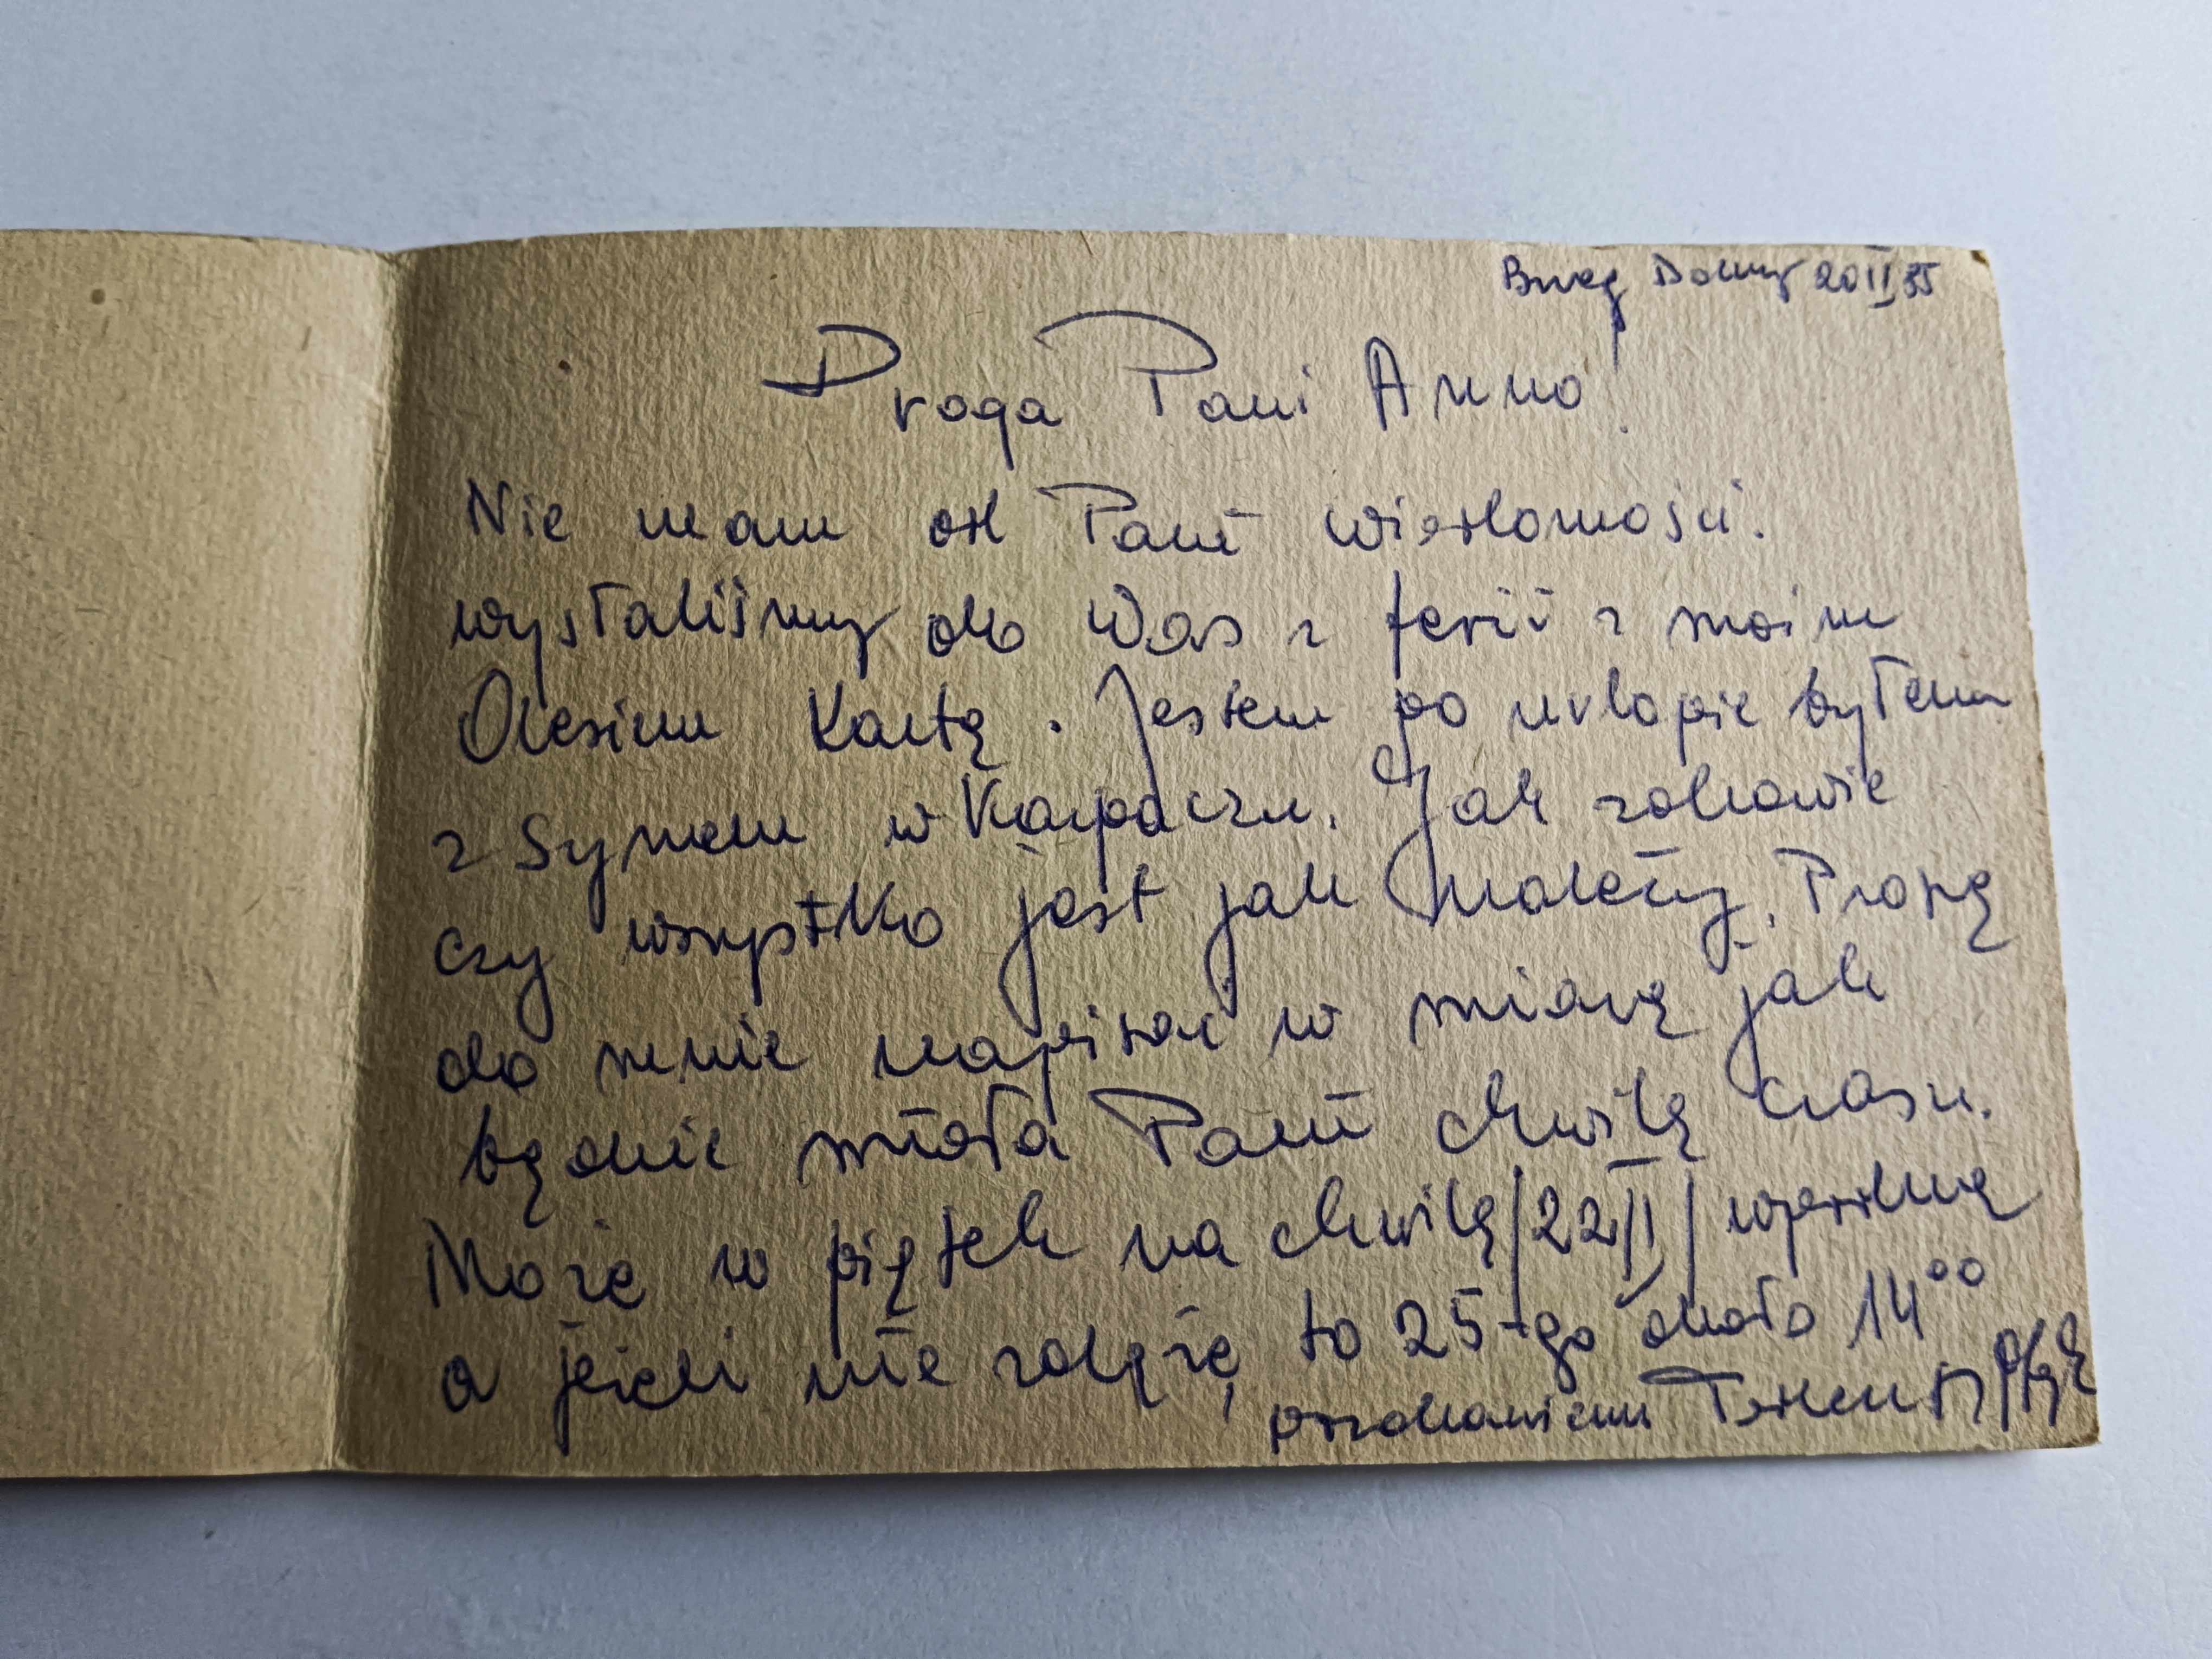 Brzeg Dolny 20 II 85
Droga Pani Anno!
Nie mam od Pani wiadomości.
wysłaliśmy do Was z ferii z moim
Olesiem Kartę. Jestem po urlopie byłem
z Synem w Karpaczu. Jak zdrowie
czy wszystko jest jak należy. Proszę
do mnie napisać w miarę jak
będzie miała Pani chwilę czasu.
Może w piątek na chwilę /22 II/ wpadnę
a jeżeli nie zdążę, to 25-go około 14⁰⁰
pozdrawiam Tadeusz